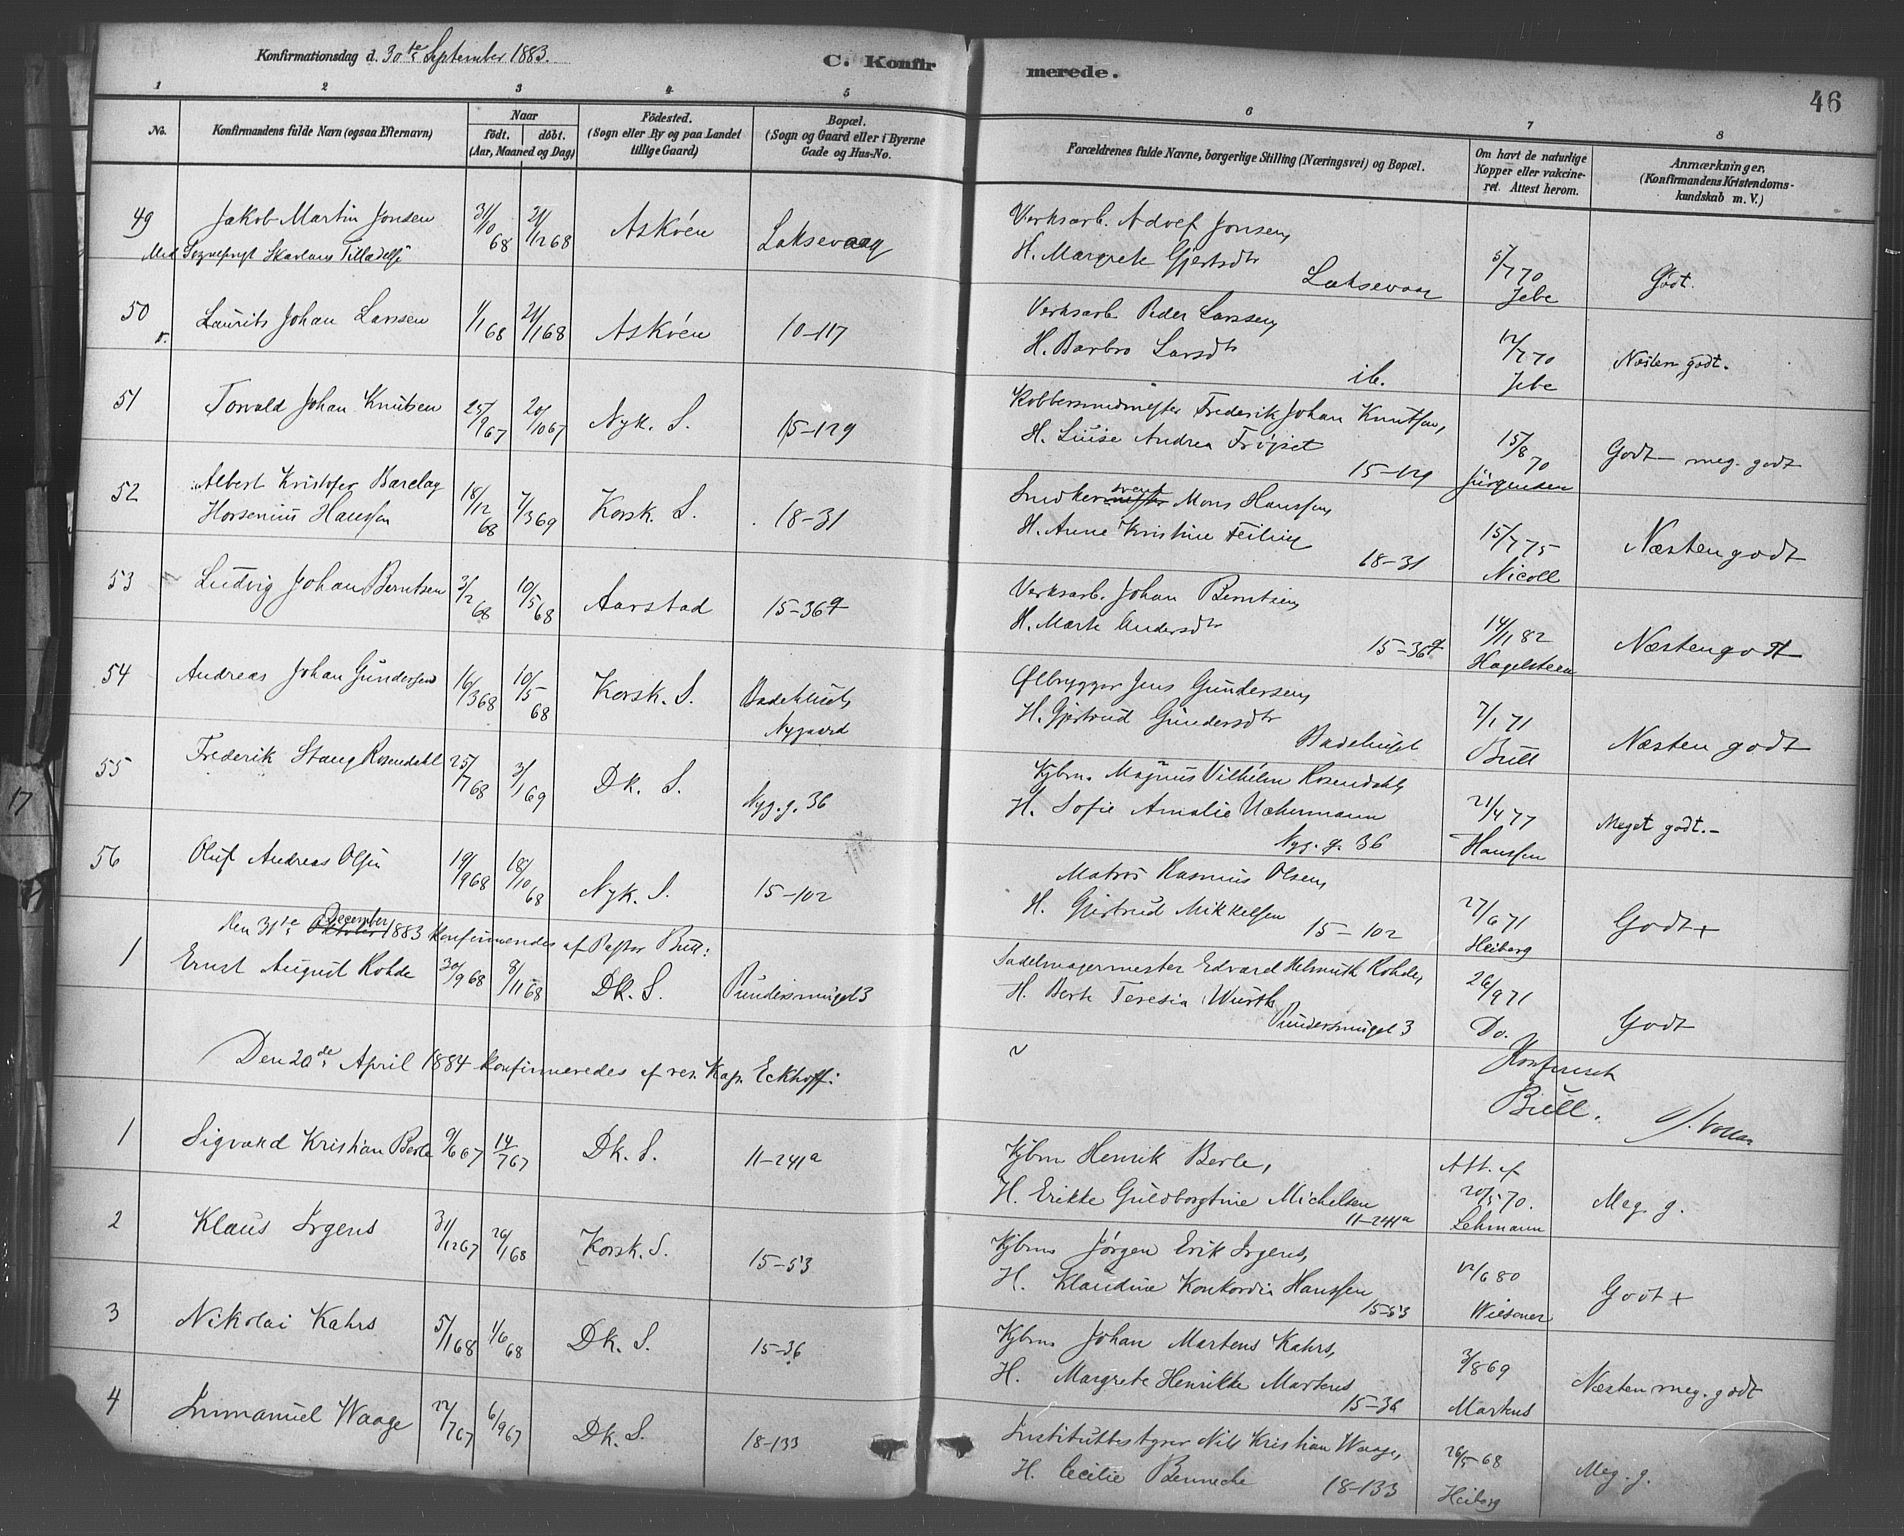 Konfirmationsdag d. 30te September 1883.
C. Konfirmerede.
46
1 2 3 4 5 6 7 8
No.
Konfirmandens fulde Navn (ogsaa Efternavn)
Naar
født. døbt.
(Aar, Maaned og Dag)
Fødested.
(Sogn eller By og paa Landet
tillige Gaard)
Bopæl.
(Sogn og Gaard eller i Byerne
Gade og Hus-No.
Forældrenes fulde Navne, borgerlige Stilling (Næringsvei) og Bopæl.
Om havt de naturlige
Kopper eller vakcine-
ret. Attest herom.
Anmærkninger.
(Konfirmandens Kristendoms-
kundskab m. V.)
49 Jakob Martin Jonsen 31/10 68 21/12 68 Askøen Laksevaag Verksarb. Adolf Jonsen,
Med Sogneprest Tilladelse
H. Margrete Gjertsdtr Laksevaag 5/7 70 Jebe Godt.
50 v. Laurits Johan Larssen 1/1 68 21/1 68 Askøen 10-117 Verksarb. Peder Larssen,
H. Barbro Larsdtr ib. 12/7 70 Jebe Næsten godt.
51 Torvald Johan Knutsen 25/9 67 20/10 67 Nyk. S. 15-129 Kobbersmedmester Frederik Johan Knutsen,
H. Luise Andrea Frøiset 15-129 15/8 70 Jürgensen Godt - meg. godt
52 Albert Kristofer Barclay
Horsenius Hanssen 18/12 68 7/3 69 Korsk. S. 18-31 Snedkersvend Mons Hanssen,
H. Anne Kristine 18-31 15/7 75 Nicoll Næsten godt
53 Ludvig Johan Berntsen 3/2 68 10/5 68 Aarstad 15-36q Verksarb. Johan Berntsen,
H. Marte Andersdtr 15-36q 14/11 82 Hagelsteen Næsten godt
54 Andreas Johan Gundersen 16/3 68 10/5 68 Korsk. S. Badehuset,
Nygaard
Ølbrygger Jens Gundersen,
H. Gjertrud Gundersdtr Badehuset 7/1 71 Bull Næsten godt
55 Frederik Stang Rosendahl 25/7 68 3/1 69 Dk. S. Nyg.g. 36 Kjbm. Magnus Vilhelm Rosendahl,
H. Sofie Amalie Uchermann
Nyg. g. 36 21/4 77 Hanssen Meget godt.-
56 Oluf Andreas Olsen 19/9 68 18/10 68 Nyk. S. 15-102 Matros Rasmus Olsen,
H. Gjertrud Mikkelsen 15-102 27/6 71 Heiberg Godt +
Den 31te Oktober December 1883 konfirmeredes af Pastor Bull:
1 Ernst August Rohde 30/9 68 8/11 68 Dk. S. Pundersmuget 3 Sadelmagermester Edvard Helmuth Rohde,
H. Berte Teresia Wurth Pundersmuget 3 26/9 71 Do. Godt
Den 20de April 1884 konfirmeredes af res. Kap. Eckhoff:
Konfereret
Bull.
1 Sigvard Kristian Berle 9/6 67 14/7 67 Dk. S. 11-241a Kjbm Henrik Berle,
H. Erikke Guldborgtine Michelsen
11-241a Att. af 20/5 70. Lehmann Meg. g.
2 Klaus Irgens 31/12 67 26/1 68 Korsk. S. 15-53 Kjbm Jørgen Erik Irgens,
H. Klaudine Konkordia Hanssen
15-53 12/6 80 Wiesener Godt +
3 Nikolai Kahrs 5/1 68 1/6 68 Dk. S. 15-36 Kjbm Johan Martens Kahrs,
H. Margrete Henrikke Martens
15-36 3/8 69 Martens Næsten meg. godt
4 Immanuel Waage 22/7 67 6/9 67 Dk. S. 18-133 Institutbestyrer Nils Kristian Waage,
H. Cecilie Bennecke 18-133 26/5 68 Heiberg Meg. g.
17